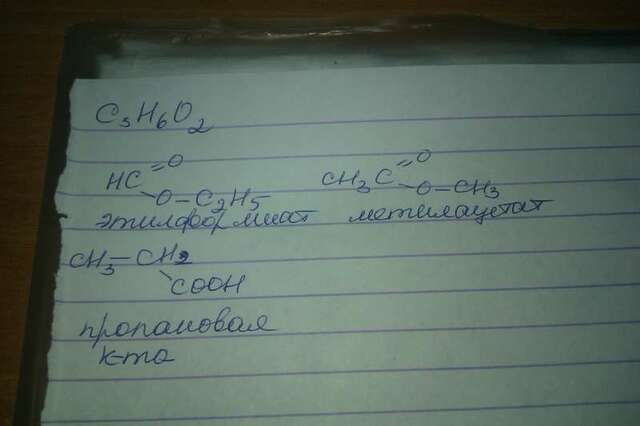 C3H6O2
HC =O
O-C2H5 CH3C =O
O-CH3
этилформиат метилацетат
CH3-CH2
COOH
пропановая
к-та